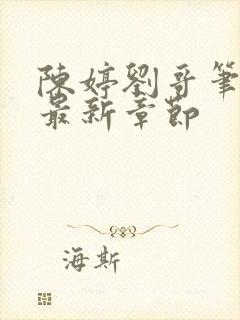 陳婷劉哥筆
最新章節
海斯